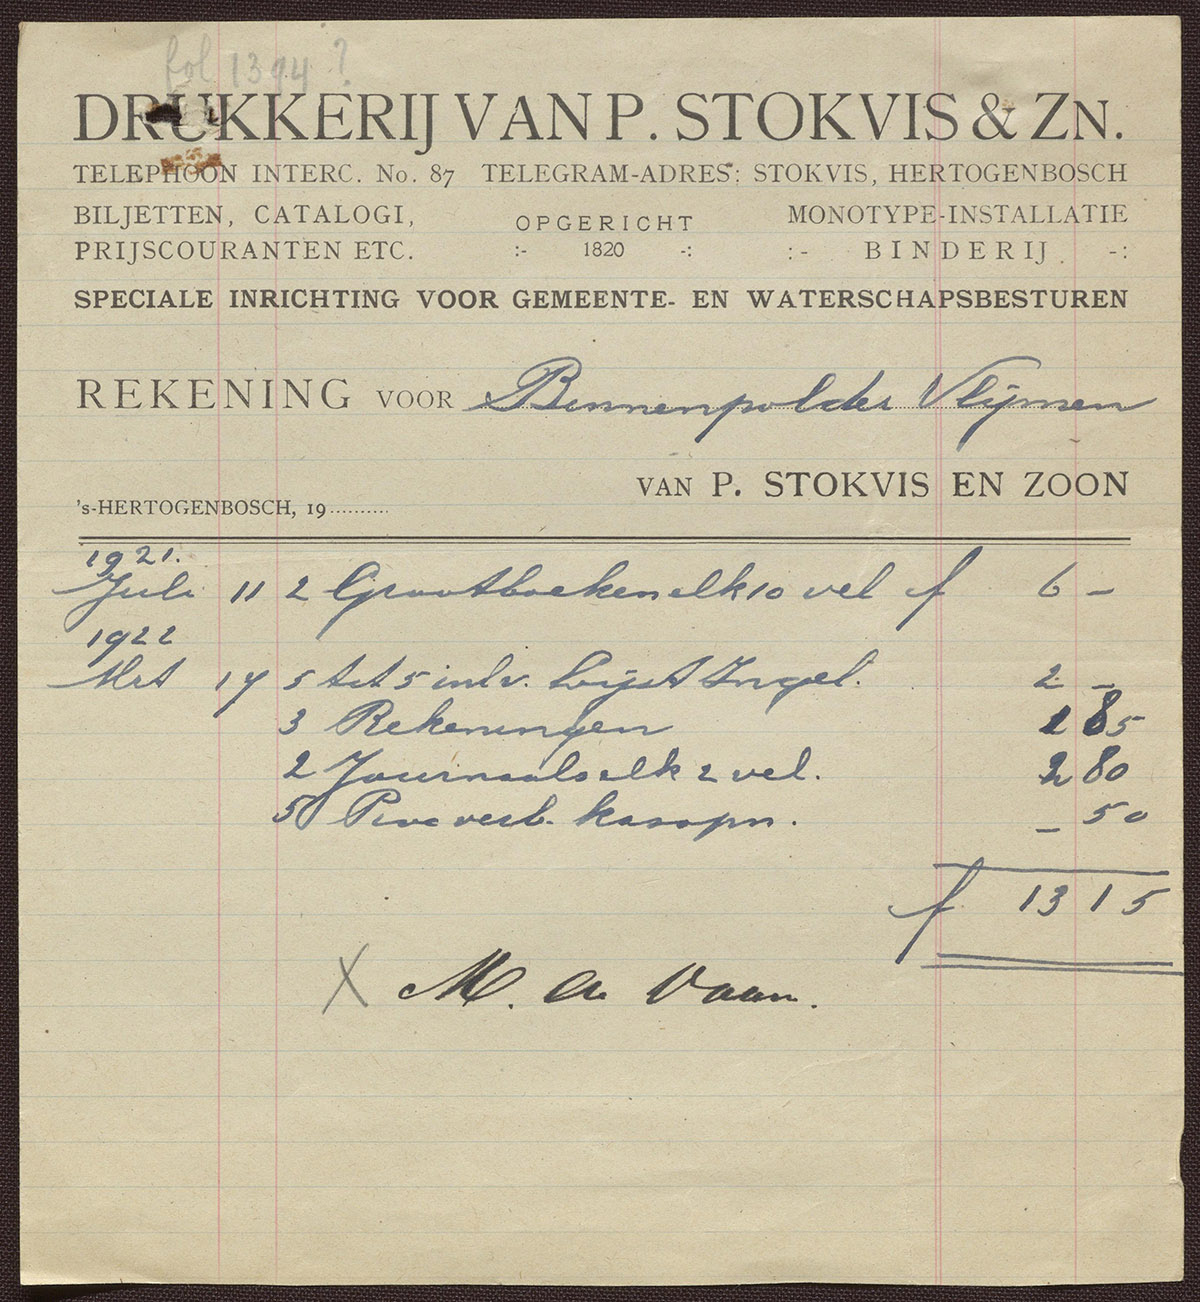 fol 1394?
DRUKKERIJ VAN P. STOKVIS & ZN.
TELEPHOON INTERC. No. 87 TELEGRAM-ADRES: STOKVIS, HERTOGENBOSCH
BILJETTEN, CATALOGI, OPGERICHT MONOTYPE-INSTALLATIE
PRIJSCOURANTEN ETC. :- 1820 -: :- BINDERIJ -:
SPECIALE INRICHTING VOOR GEMEENTE- EN WATERSCHAPSBESTUREN
REKENING VOOR Binnenpolder Vlijmen
VAN P. STOKVIS EN ZOON
's-HERTOGENBOSCH, 19..........
1921.
Juli 11 2 Grootboeken elk 10 vel f 6 –
1922
Mrt 17 5 5 inlv. Lijst Ingel. 2 –
3 Rekeningen 1 85
2 Journaals elk 2 vel. 2 80
5 Proc verb. kasopn. – 50
f 13 15
X M. de Vaan.